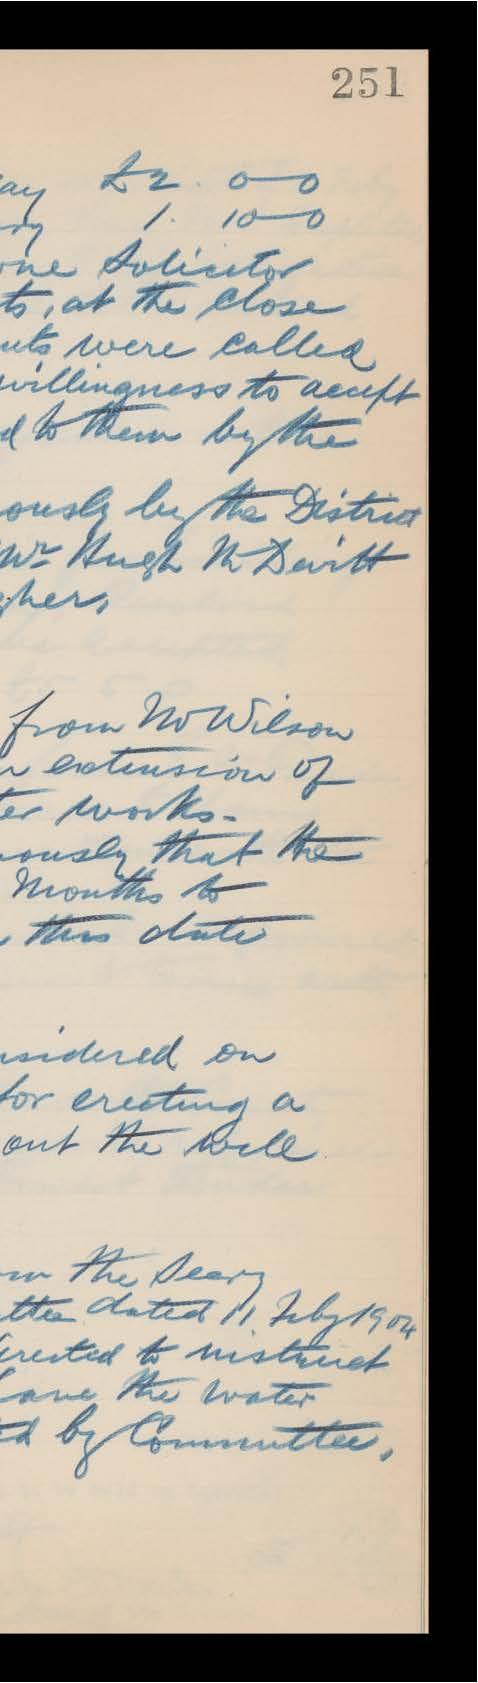 251
ay £2. 0-0
ry 1. 10-0
one Solicitor
ts, at the close
nts were called
willingness to accept
d to them by the
ously by the District
Mr Hugh McDevitt
gher,
from Mr Wilson
n extension of
ter works.
ously that the
Months to
this date
nsidered on
for erecting a
out the well
om the Secry
ttee dated 11 Feby 1904
irected to instruct
have the water
ed by Committee,